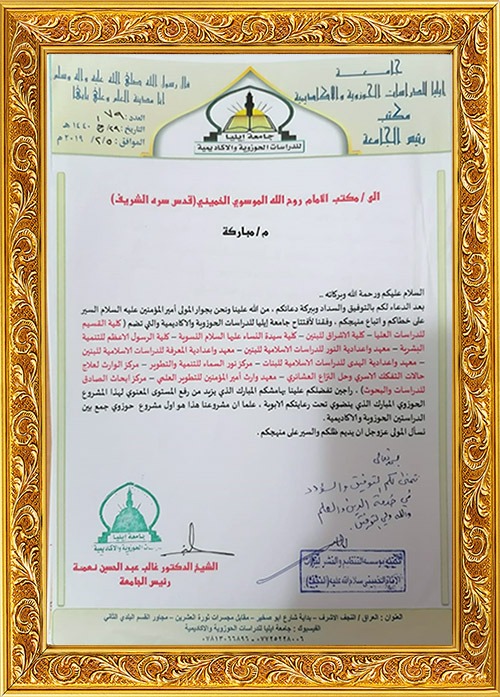 جامعة
ايليا للدراسات الحوزوية والاكاديمية
مكتب
رئيس الجامعة
جامعة إيليا
للدراسات الحوزوية والاكاديمية
قال رسول الله صلى الله عليه واله وسلم
انا مدينة العلم وعلي بابها
العدد:
التاريخ: ١٤٤٠ هـ
الموافق: ٢/٥/ ٢٠١٩ م
الى / مكتب الامام روح الله الموسوي الخميني(قدس سره الشريف)
م/ مباركة
السلام عليكم ورحمة الله وبركاته ..
بعد الدعاء لكم بالتوفيق والسداد وببركة دعائكم . من الله علينا ونحن بجوار المولى أمير المؤمنين عليه السلام السير
على خطاكم و اتباع منهجكم . وفقنا لأفتتاح جامعة إيليا للدراسات الحوزوية والاكاديمية والتي تضم ( كلية القسيم
للدراسات العليا – كلية الاشراق للبنين – كلية سيدة النساء عليها السلام النسوية – كلية الرسول الاعظم للتنمية
البشرية – معهد واعدادية النور للدراسات الاسلامية للبنين – معهد واعدادية المعرفة للدراسات الاسلامية للبنين
– معهد واعدادية الهدى للدراسات الاسلامية للبنات – مركز نور السماء للتنمية والتطوير – مركز الوارث لعلاج
حالات التفكك الاسري وحل النزاع العشائري – معهد وارث أمير المؤمنين للتطوير العلمي – مركز ابحاث الصادق
للدراسات والبحوث) . راجين تفضلكم علينا بهامشكم المبارك الذي يزيد من رفع المستوى المعنوي لهذا المشروع
الحوزوي المبارك الذي ينضوي تحت رعايتكم الابوية . علما ان مشروعنا هذا هو اول مشروع حوزوي جمع بين
الدراستين الحوزوية والاكاديمية .
نسأل المولى عزوجل ان يديم ظلكم والسير على منهجكم .
بسمه تعالى
نتمنى لكم التوفيق والسؤدد
في خدمة الدين والعلم
والله ولي التوفيق
جامعة إيليا
للدراسات الحوزوية والاكاديمية
الشيخ الدكتور غالب عبد الحسين نعمة
رئيس الجامعة
العنوان : العراق / النجف الاشرف – بداية شارع ابو صخير – مقابل مجسرات ثورة العشرين – مجاور القسم البلدي الثاني
الفيسبوك : جامعة ايليا للدراسات الحوزوية والاكاديمية